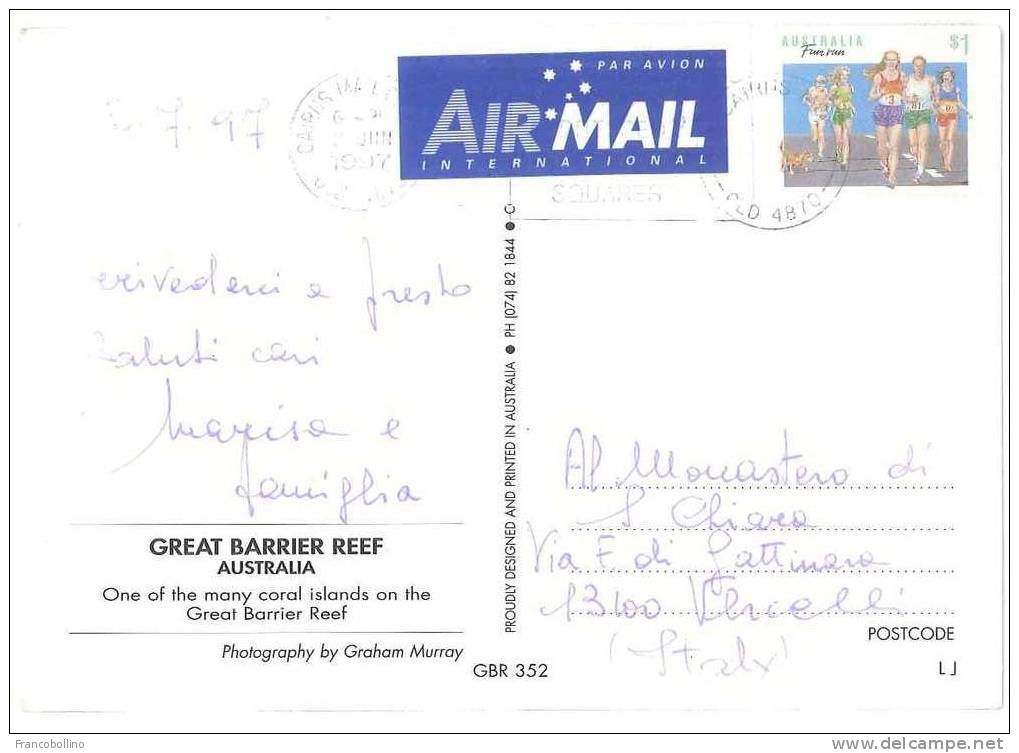 AUSTRALIA $1
Fun run
PAR AVION
AIR MAIL
INTERNATIONAL
7.97
CAIRNS
JUN
1997
SQUARES
CAIRNS
QLD 4870
arrivederci a presto
Saluti cari
Marisa e
famiglia
GREAT BARRIER REEF
AUSTRALIA
One of the many coral islands on the
Great Barrier Reef
Photography by Graham Murray
PROUDLY DESIGNED AND PRINTED IN AUSTRALIA ● PH (074) 82 1844 ●
Al Monastero di
S Chiara
Via F. di Gattinara
13100 Vercelli
(Italy)
POSTCODE
GBR 352
LJ
Francobollino
www.delcampe.net